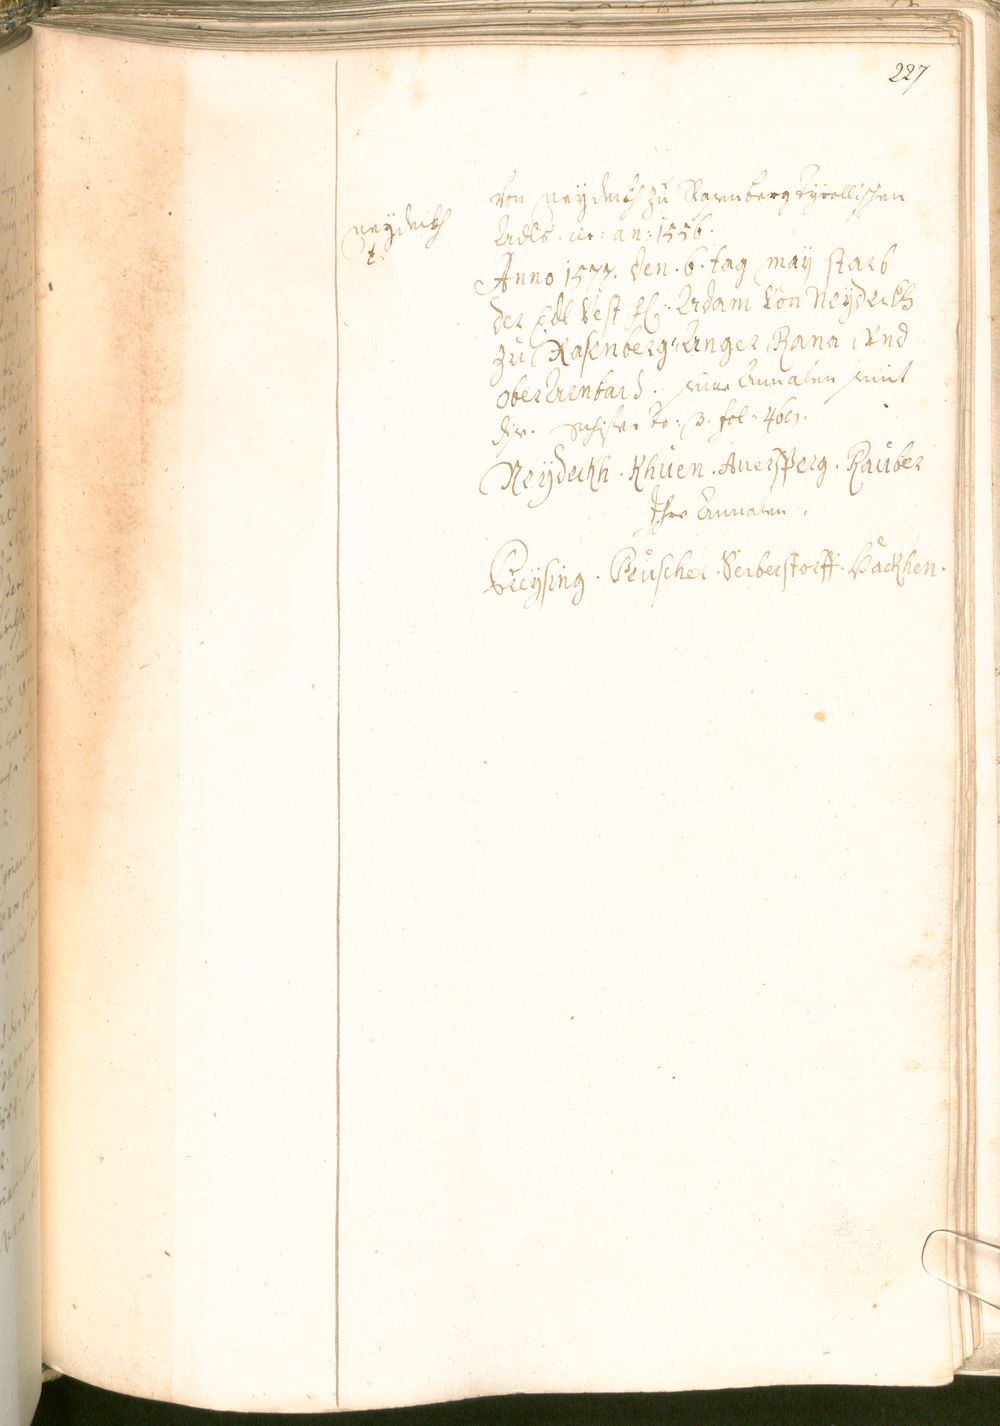 227
Neydeckh
t.
Von Neydeckh zu Rannberg Tyrollischen
Adls. etc: an: 1556.
Anno 1577. den. 6. tag may starb
der Edl Vest H: Adam Von Neydeckh
zu Rasenberg Anger Rana Vnd
oberArnbach. seine Annaten seint
dise. To: 3. fol: 469.
Neydeckh. Khuen. Auersperg. Rauber
Ihre Annaten.
Preysing. Preuscher. Seiberstorff. Häckhen.